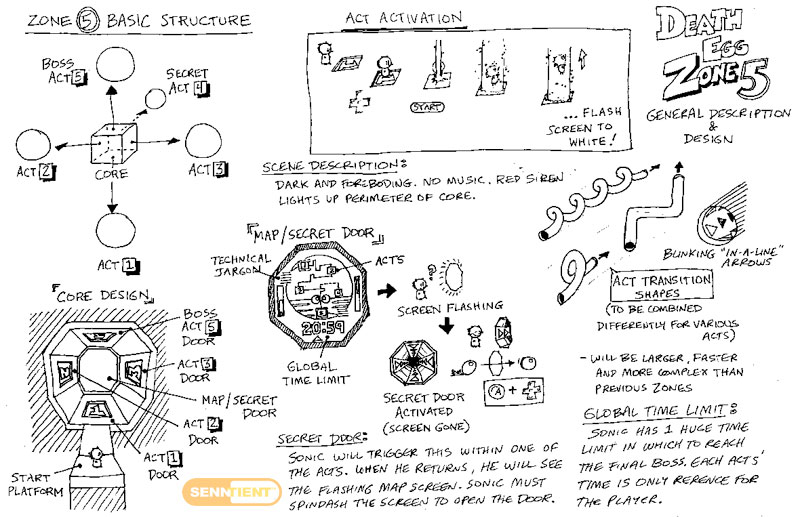 ZONE 5 BASIC STRUCTURE
BOSS
ACT 5
SECRET
ACT 4
ACT 2
CORE
ACT 3
ACT 1
ACT ACTIVATION
START
... FLASH
SCREEN TO
WHITE!
DEATH
EGG
ZONE 5
GENERAL DESCRIPTION
&
DESIGN
SCENE DESCRIPTION:
DARK AND FOREBODING. NO MUSIC. RED SIREN
LIGHTS UP PERIMETER OF CORE.
"MAP/SECRET DOOR"
TECHNICAL
JARGON
ACTS
20:59
GLOBAL
TIME LIMIT
?
SCREEN FLASHING
SECRET DOOR
ACTIVATED
(SCREEN GONE)
A +
BLINKING "IN-A-LINE"
ARROWS
ACT TRANSITION
SHAPES
(TO BE COMBINED
DIFFERENTLY FOR VARIOUS
ACTS)
- WILL BE LARGER, FASTER
AND MORE COMPLEX THAN
PREVIOUS ZONES
"CORE DESIGN"
BOSS
ACT 5
DOOR
ACT 3
DOOR
MAP/SECRET
DOOR
ACT 2
DOOR
ACT 1
DOOR
START
PLATFORM
SENNTIENT
SECRET DOOR:
SONIC WILL TRIGGER THIS WITHIN ONE OF
THE ACTS. WHEN HE RETURNS, HE WILL SEE
THE FLASHING MAP SCREEN. SONIC MUST
SPINDASH THE SCREEN TO OPEN THE DOOR.
GLOBAL TIME LIMIT:
SONIC HAS 1 HUGE TIME
LIMIT IN WHICH TO REACH
THE FINAL BOSS. EACH ACTS'
TIME IS ONLY RERENCE FOR
THE PLAYER.